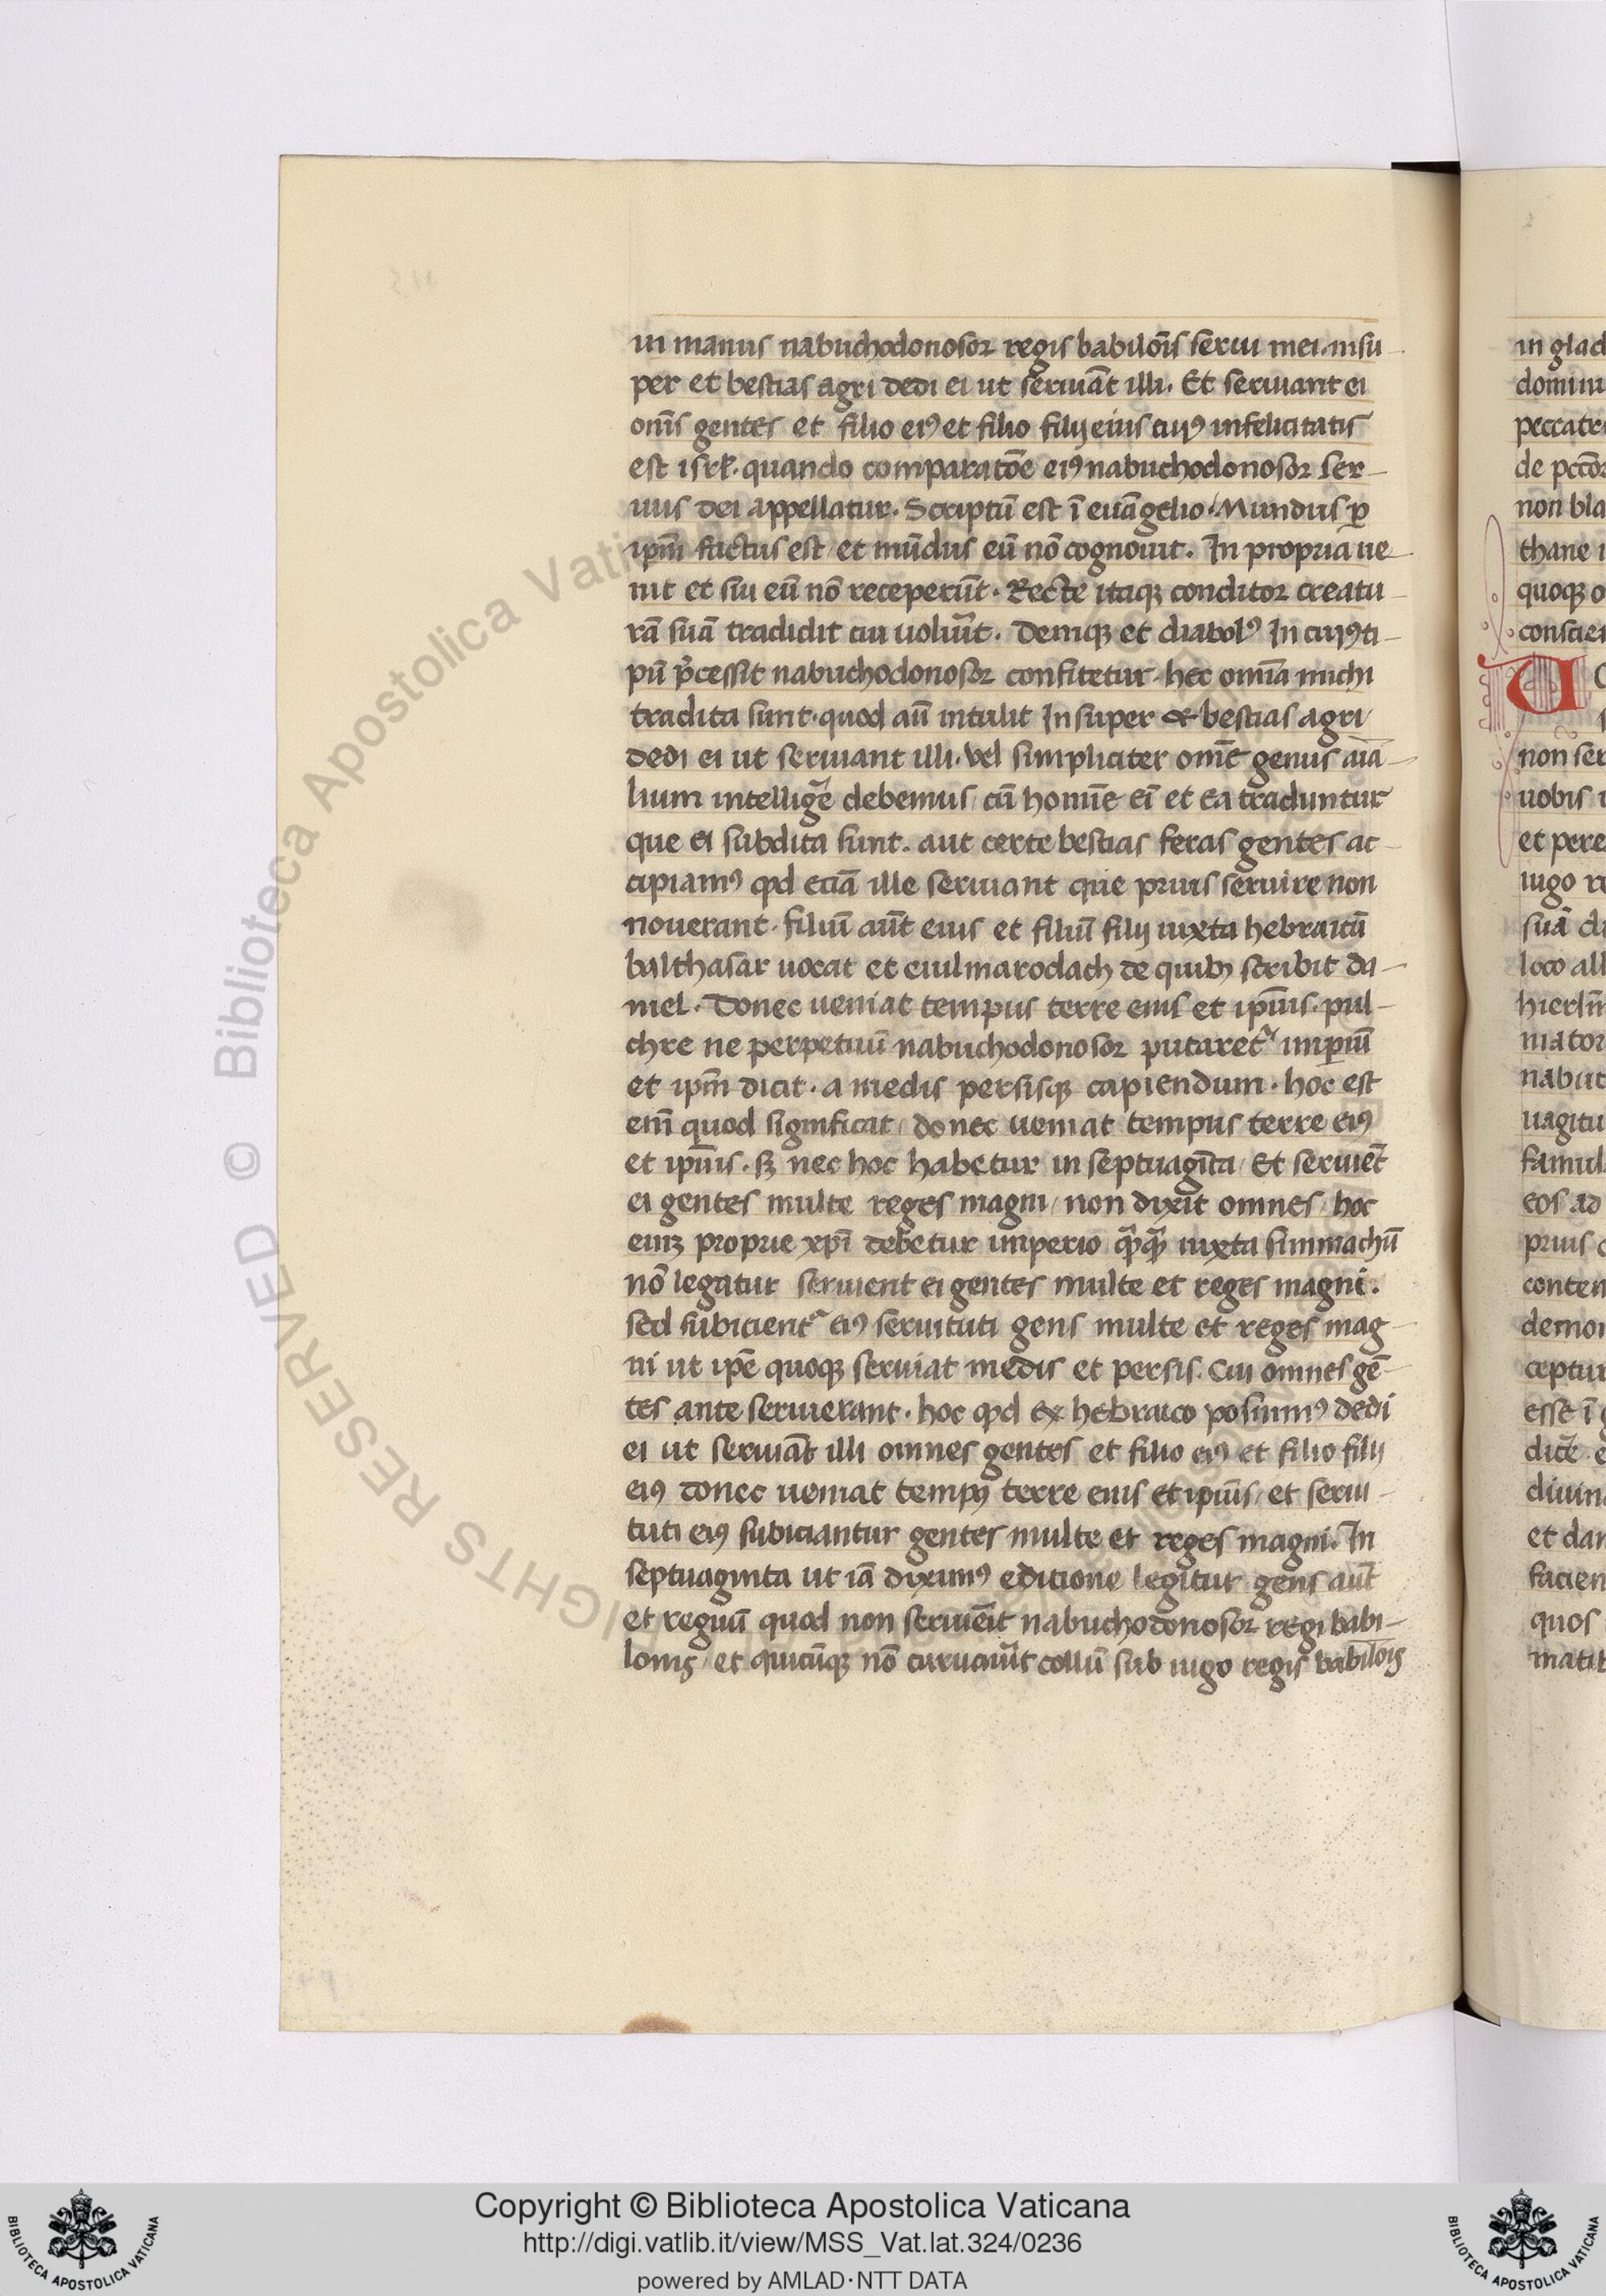 in manus nabuchodonosor regis babilōis serui mei. insu-
per et bestias agri dedi ei ut seruiāt illi. Et seruiant ei
om̄s gentes et filio eiꝰ et filio filij eius cuiꝰ infelicitatis
est isrl̄. quando comparatōe eiꝰ nabuchodonosor ser-
uus dei appellatur. Scriptū est ī euāgelio / Mundus ꝑ
ipm̄ factus est / et mūdus eū nō cognouit. In propria ue-
nit et sui eū nō receperūt. Recte itaqꝫ conditor creatu-
rā suā tradidit cui uoluit̄. Deniqꝫ et diabolꝰ In cuiꝰ ti-
pū p̄cessit nabuchodonosor confitetur. hec omīa michi
tradita sunt. quod aū intulit In super & bestias agri /
dedi ei ut seruiant illi. vel simpliciter omē genus aīa-
lium intelligē debemus / cū homīe eī et ea traduntur
que ei subdita sunt. aut certe bestias feras gentes ac-
cipiamꝰ qd eciā ille seruiant que prius seruire non
nouerant. filiū aūt eius et filiū filij iuxta hebraicū
balthasar uocat et euilmarodach de quibꝫ scribit da-
niel. Donec ueniat tempus terre eius et ipīus. pul-
chre ne perpetuū nabuchodonosor putaret᷑ imꝑiū
et ipm̄ dicit. a medis persisqꝫ capiendum. hoc est
em̄ quod significat / donec ueniat tempus terre eiꝰ
et ipīus. sꝫ nec hoc habetur in septuagīta / Et seruiēt
ei gentes multe reges magni / non dixit omnes / hoc
enīꝫ proprie xp̄i debetur imperio qͣqͣ iuxta simmachū
nō legatur seruient ei gentes multe et reges magni.
sed subicient᷑ eiꝰ seruituti gens multe et reges mag-
ni ut ipē quoqꝫ seruiat medis et persis. Cui omnes gē-
tes ante seruierant. hoc qd ex hebraico posuimꝰ dedi
ei ut seruiāt illi omnes gentes et filio eiꝰ et filio filij
eiꝰ donec ueniat tempꝰ terre eius et ipīus / et serui-
tuti eiꝰ subiciantur gentes multe et reges magni. In
septuaginta ut iā diximꝰ editione legitur gens aūt
et regnū quod non seruiēit nabuchodonosor regi babi-
lonis / et quicūqꝫ nō curuauit̄ collū sub iugo regis babilōis
in glad
peccatr
non bla
thane i
quoqꝫ o
conscien
non ser
uobis
et pere
iugo
loco all
mator
nabuc
uagitu
famul
eos ad
prius
conten
demon
ceptur
esse ī
diuin
et dan
facien
quos
© Biblioteca Apostolica Vaticana
ALL RIGHTS RESERVED
Copyright © Biblioteca Apostolica Vaticana
http://digi.vatlib.it/view/MSS_Vat.lat.324/0236
powered by AMLAD·NTT DATA
BIBLIOTECA APOSTOLICA VATICANA
BIBLIOTECA APOSTOLICA VATICANA